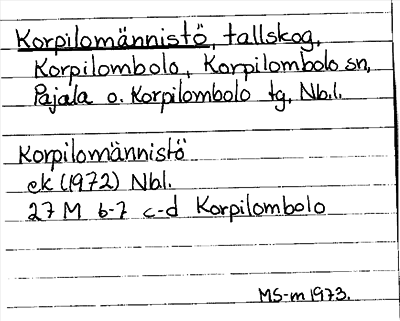 Korpilomännistö, tallskog,
Korpilombolo, Korpilombolo sn,
Pajala o. Korpilombolo tg, Nb.l.
Korpilomännistö
ek (1972) Nbl.
27 M 6-7 c-d Korpilombolo
MS-m 1973.